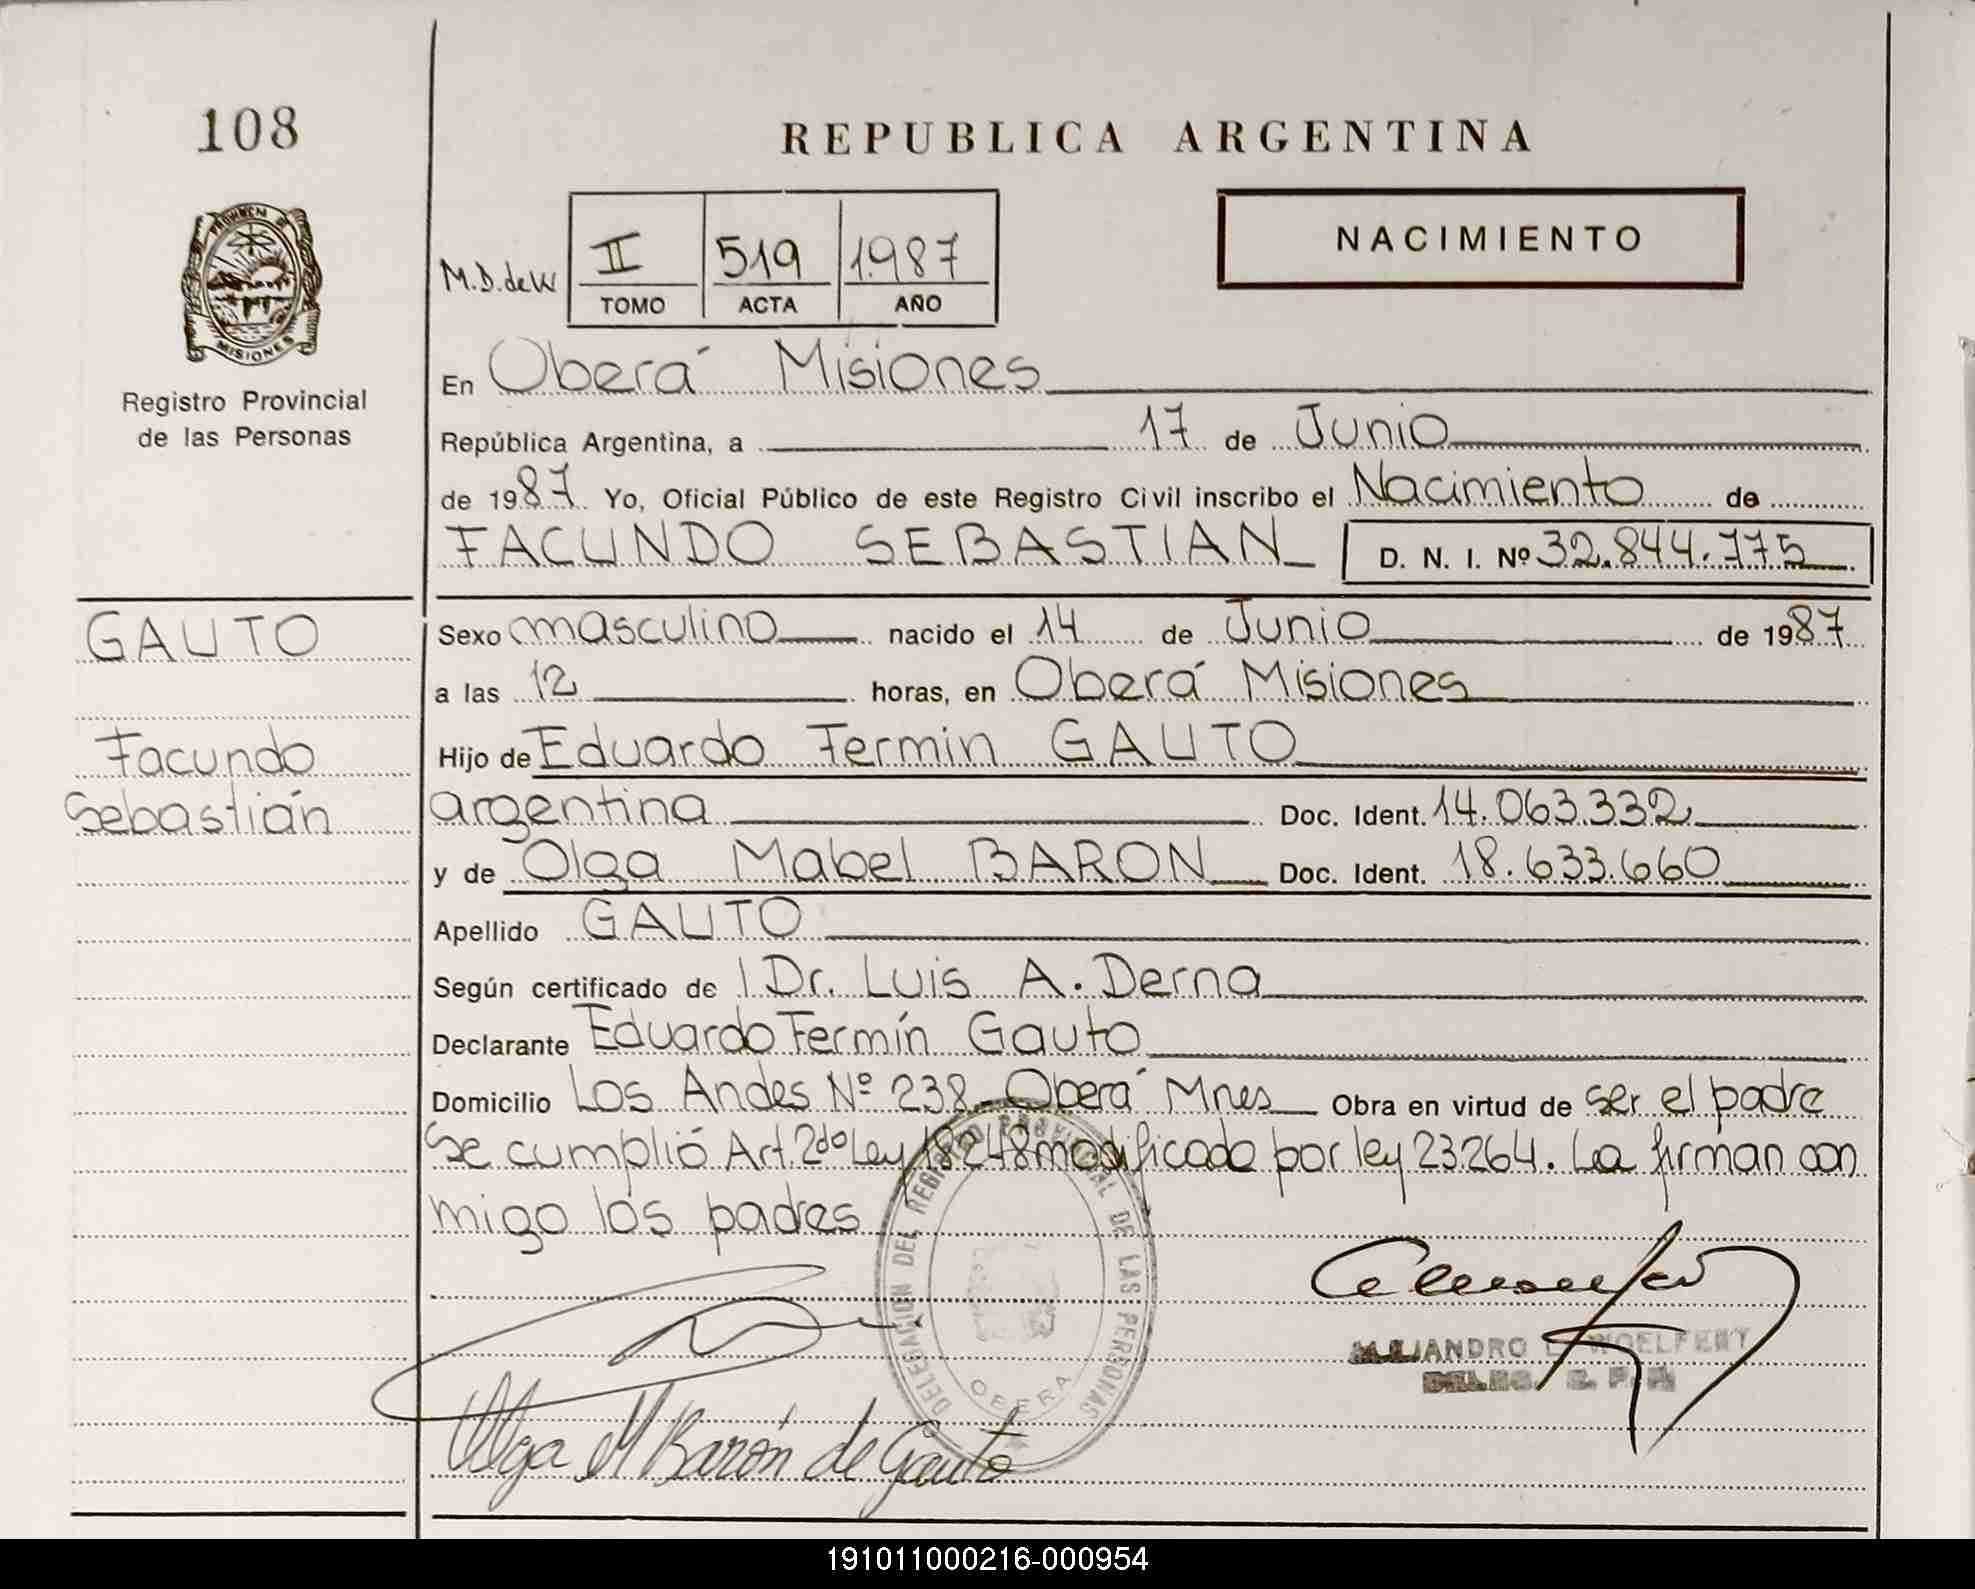 108
REPUBLICA ARGENTINA
PROVINCIA DE
MISIONES
NACIMIENTO
M.D.de W
II 519 1.987
TOMO ACTA AÑO
Registro Provincial
de las Personas
En Oberá Misiones
República Argentina, a 17 de Junio
de 1987. Yo, Oficial Público de este Registro Civil inscribo el Nacimiento de
FACUNDO SEBASTIAN D. N. I. Nº 32.844.775
GAUTO
Facundo
Sebastián
Sexo masculino nacido el 14 de Junio de 1987
a las 12 horas, en Oberá Misiones
Hijo de Eduardo Fermin GAUTO
argentina Doc. Ident. 14.063.332
y de Olga Mabel BARON Doc. Ident. 18.633.660
Apellido GAUTO
Según certificado de l Dr. Luis A. Derna
Declarante Eduardo Fermín Gauto
Domicilio Los Andes Nº 238 - Oberá Mnes Obra en virtud de ser el padre
Se cumplió Art. 2do Ley 18248 modificado por ley 23264. La firman con
migo los padres
DELEGACION DEL REGISTRO PROVINCIAL DE LAS PERSONAS
OBERA
ALEJANDRO WOELFERT
Olga M Barón de Gauto
191011000216-000954